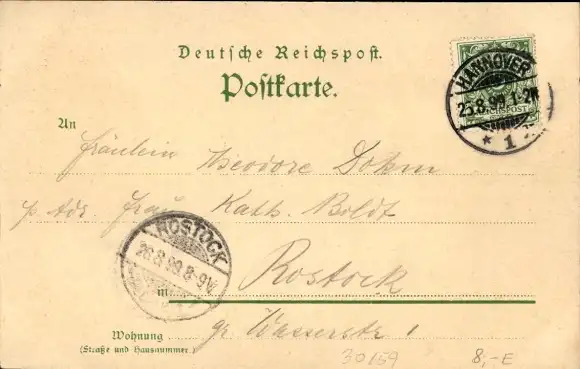 Deutsche Reichspost.
Postkarte.
HANNOVER
25.8.99.1-2N
* 1
REICHSPOST
An
Fräulein Theodore Dohm
p. Adr. Frau Kath. Boldt
ROSTOCK
26.8.99.8-9V.
in Rostock
Wohnung gr Wasserstr 1
(Straße und Hausnummer)
30159 8,-E